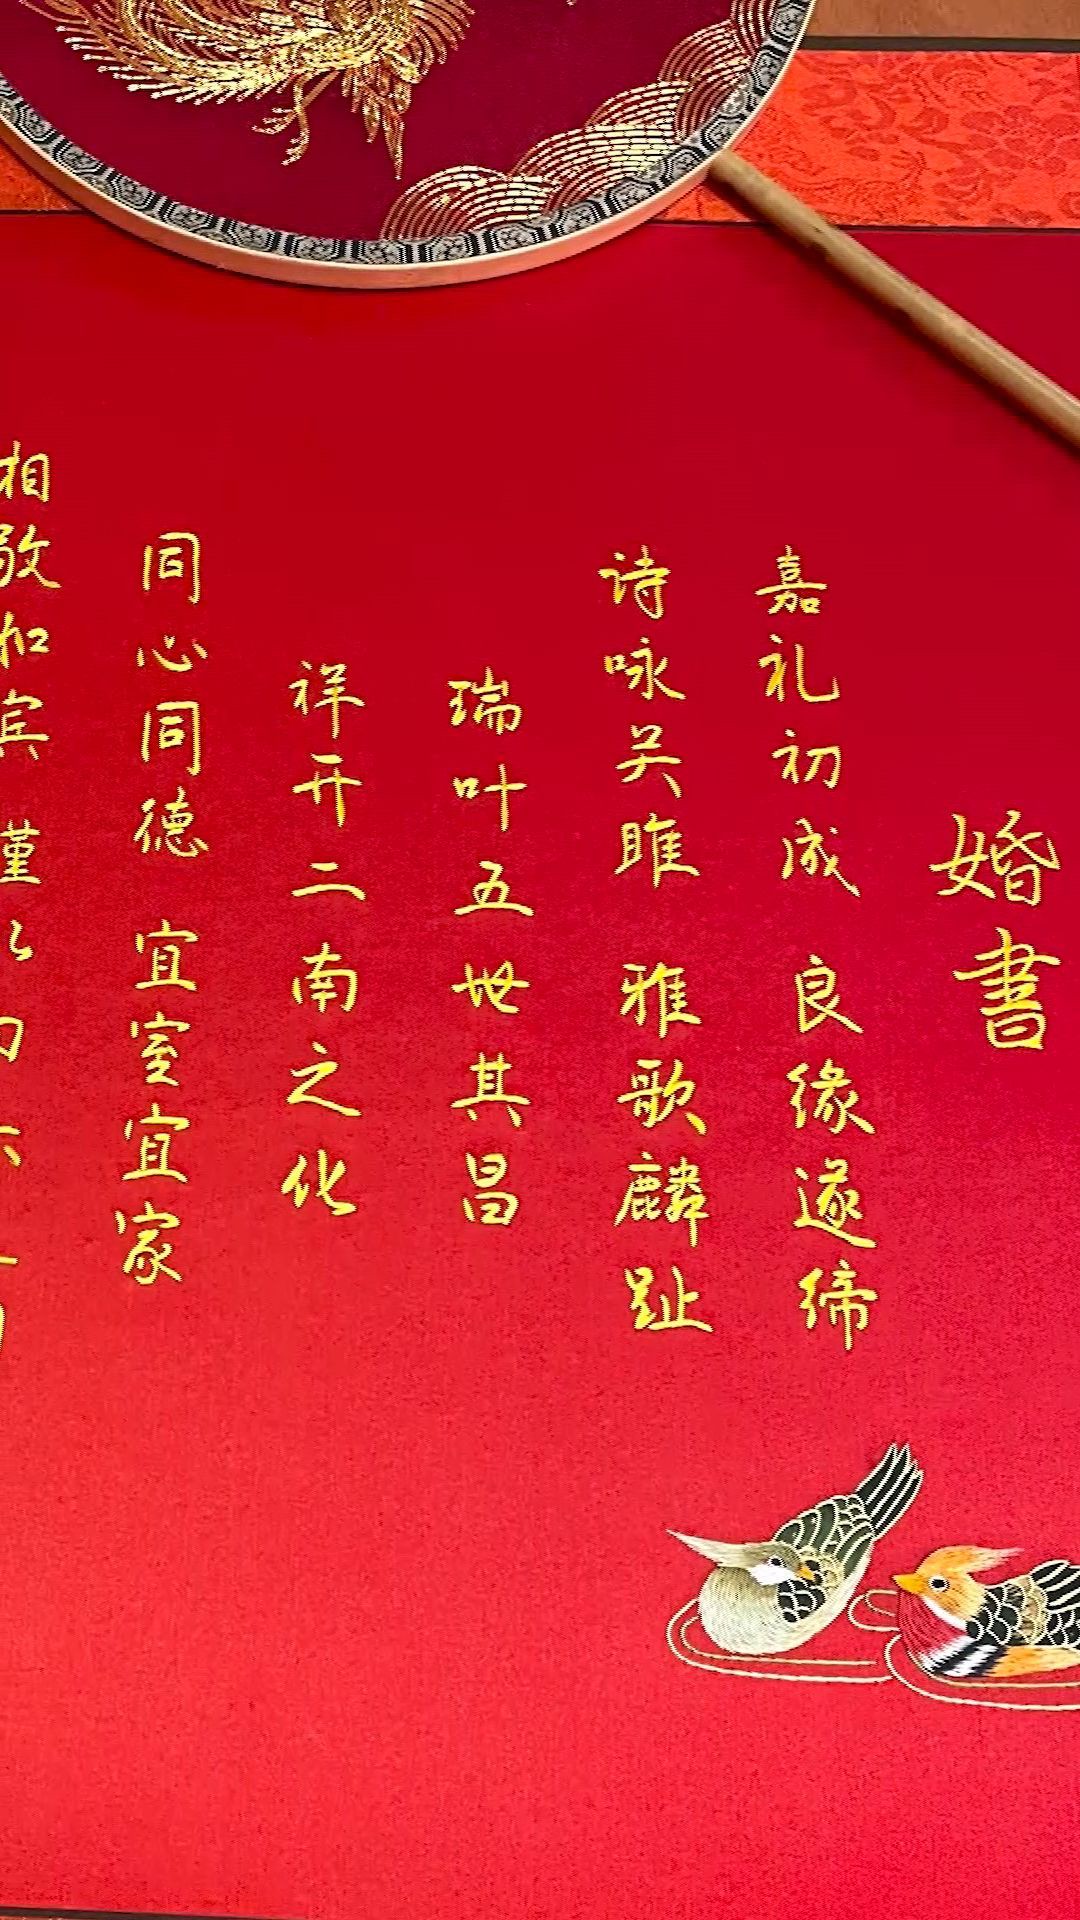 婚書
嘉礼初成 良缘遂缔
诗咏关雎 雅歌麟趾
瑞叶五世其昌
祥开二南之化
同心同德 宜室宜家
相敬如宾 谨以